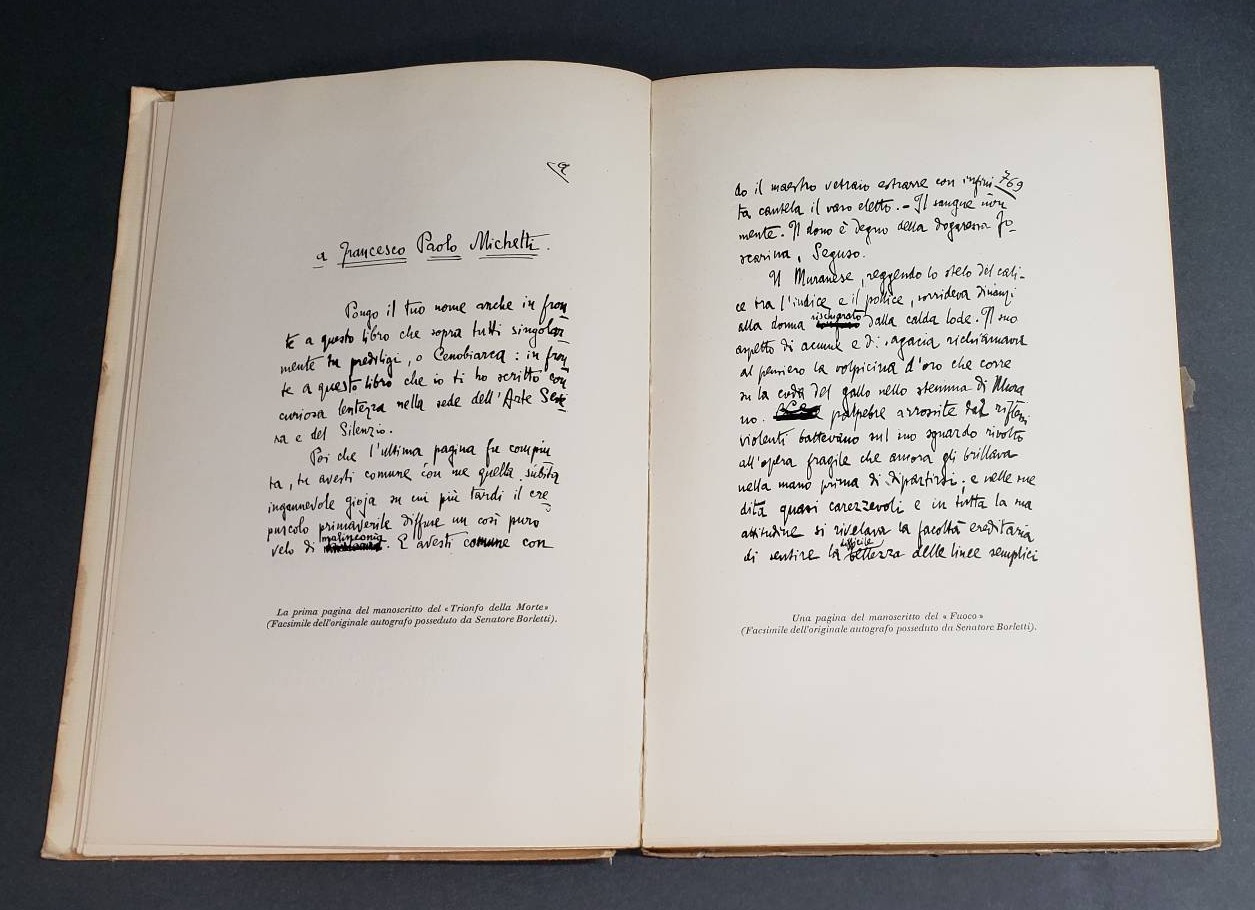 a Francesco Paolo Michetti.
Pongo il tuo nome anche in fron
te a questo libro che sopra tutti singolar
mente tu prediligi, o Cenobiarca: in fron
te a questo libro che io ti ho scritto con
curiosa lentezza nella sede dell'Arte Seve
ra e del Silenzio.
Poi che l'ultima pagina fu compiu
ta, tu avesti comune con me quella sùbita
ingannevole gioja su cui più tardi il cre
puscolo primaverile diffuse un così puro
velo di malinconia. E avesti comune con
La prima pagina del manoscritto del «Trionfo della Morte»
(Facsimile dell'originale autografo posseduto da Senatore Borletti).
769
do il maestro vetraio estrasse con infini
ta cautela il vaso eletto. – Il sangue non
mente. Il dono è degno della dogaressa Fo-
scarina, Seguso.
Il Muranese, reggendo lo stelo del cali-
ce tra l'indice e il pollice, sorrideva dinanzi
alla donna rischiarato dalla calda lode. Il suo
aspetto di acume e di sagacia richiamava
al pensiero la volpicina d'oro che corre
su la coda del gallo nello stemma di Mura
no. palpebre arrossite dai riflessi
violenti battevano sul suo sguardo rivolto
all'opera fragile che ancora gli brillava
nella mano prima di dipartirsi; e nelle sue
dita quasi carezzevoli e in tutta la sua
attitudine si rivelava la facoltà ereditaria
di sentire la difficile bellezza delle linee semplici
Una pagina del manoscritto del «Fuoco»
(Facsimile dell'originale autografo posseduto da Senatore Borletti).